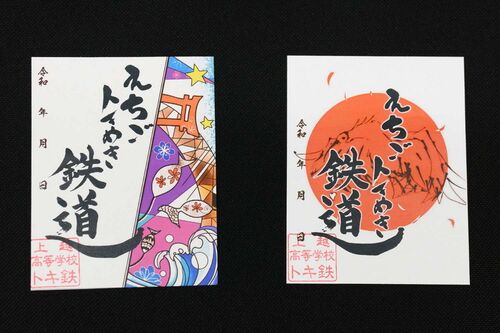 えちご
トキめき
鉄道
令和 年 月 日
上越
高等学校
トキ鉄
えちご
トキめき
鉄道
令和 年 月 日
上越
高等学校
トキ鉄